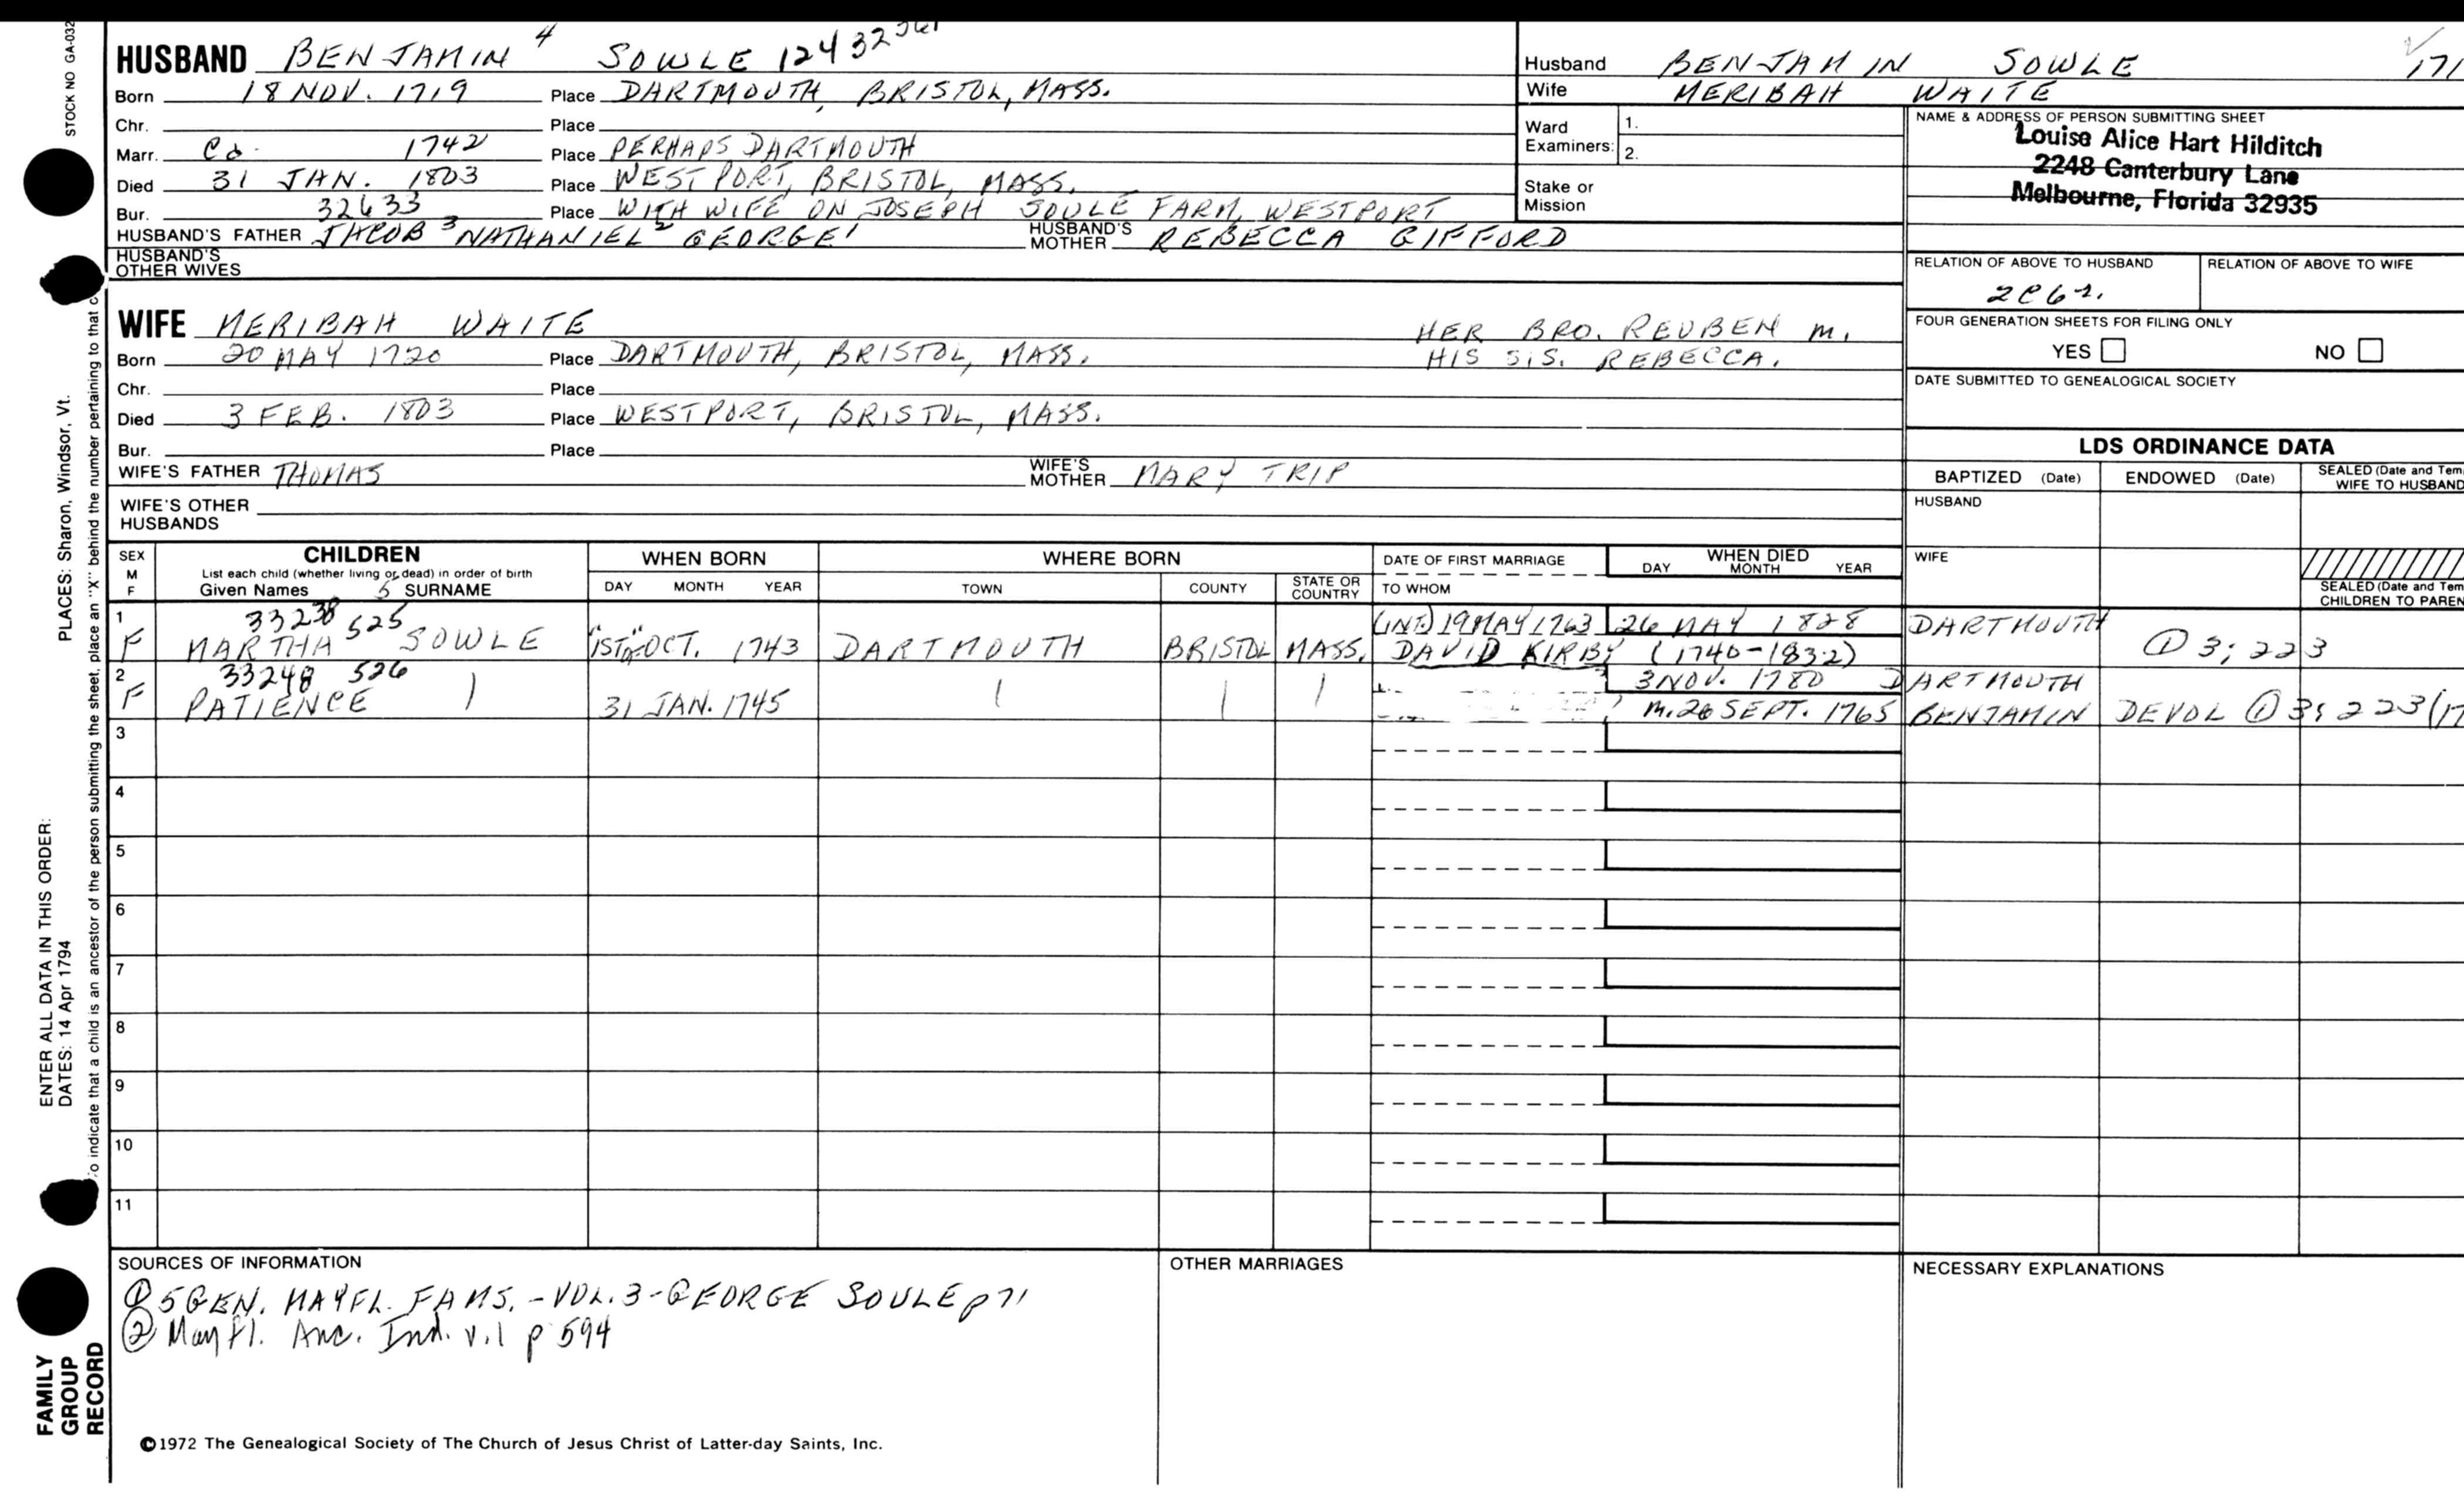 STOCK NO GA-032
HUSBAND BENJAMIN 4 SOWLE 12432
Born 18 NOV. 1719 Place DARTMOUTH, BRISTOL, MASS.
Chr. Place
Marr. Ca. 1742 Place PERHAPS DARTMOUTH
Died 31 JAN. 1803 Place WESTPORT, BRISTOL, MASS.
Bur. 32633 Place WITH WIFE ON JOSEPH SOULE FARM, WESTPORT
HUSBAND'S FATHER JACOB 3 NATHANIEL 2 GEORGE 1 HUSBAND'S MOTHER REBECCA GIFFORD
HUSBAND'S OTHER WIVES
WIFE MERIBAH WAITE
HER BRO. REUBEN m.
HIS SIS. REBECCA.
Born 20 MAY 1720 Place DARTMOUTH, BRISTOL, MASS.
Chr. Place
Died 3 FEB. 1803 Place WESTPORT, BRISTOL, MASS.
Bur. Place
WIFE'S FATHER THOMAS WIFE'S MOTHER MARY TRIP
WIFE'S OTHER HUSBANDS
Husband BENJAMIN SOWLE 171
Wife MERIBAH WAITE
Ward Examiners: 1.
2.
Stake or Mission
NAME & ADDRESS OF PERSON SUBMITTING SHEET
Louise Alice Hart Hilditch
2248 Canterbury Lane
Melbourne, Florida 32935
RELATION OF ABOVE TO HUSBAND RELATION OF ABOVE TO WIFE
2C6r.
FOUR GENERATION SHEETS FOR FILING ONLY
YES NO
DATE SUBMITTED TO GENEALOGICAL SOCIETY
LDS ORDINANCE DATA
BAPTIZED (Date) ENDOWED (Date) SEALED (Date and Tem
WIFE TO HUSBAND
HUSBAND
WIFE
SEALED (Date and Tem
CHILDREN TO PAREN
SEX M F
CHILDREN
List each child (whether living or dead) in order of birth
Given Names 5 SURNAME
WHEN BORN
DAY MONTH YEAR
WHERE BORN
TOWN COUNTY STATE OR COUNTRY
DATE OF FIRST MARRIAGE
TO WHOM
WHEN DIED
DAY MONTH YEAR
1 33238 525 (INT.) 19 MAY 1763 26 MAY 1828 DARTMOUTH
F MARTHA SOWLE "1ST" OCT. 1743 DARTMOUTH BRISTOL MASS. DAVID KIRBY (1740-1832) ① 3; 223
2 33248 526 3 NOV. 1780 DARTMOUTH
F PATIENCE 31 JAN. 1745 m. 26 SEPT. 1765 BENJAMIN DEVOL ① 3; 223 (17
3
4
5
6
7
8
9
10
11
SOURCES OF INFORMATION
① 5 GEN. MAYFL. FAMS. - VOL. 3 - GEORGE SOULE p 71
② Mayfl. Anc. Ind. v. 1 p 594
OTHER MARRIAGES
NECESSARY EXPLANATIONS
©1972 The Genealogical Society of The Church of Jesus Christ of Latter-day Saints, Inc.
PLACES: Sharon, Windsor, Vt.
ENTER ALL DATA IN THIS ORDER:
DATES: 14 Apr 1794
o indicate that a child is an ancestor of the person submitting the sheet, place an "X" behind the number pertaining to that c
FAMILY
GROUP
RECORD